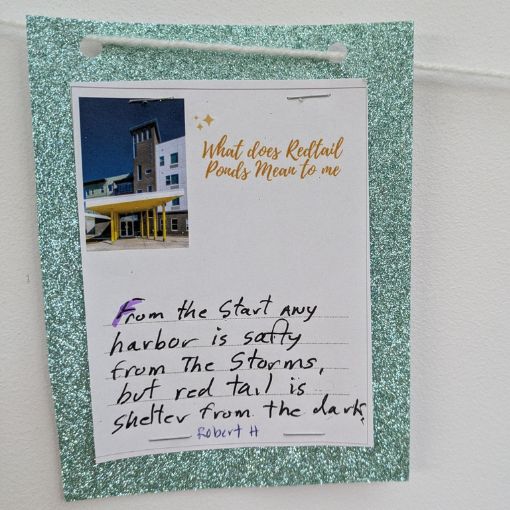 What does Redtail
Ponds Mean to me
From the Start Any
harbor is safty
from The Storms,
but red tail is
shelter from the dark.
Robert H